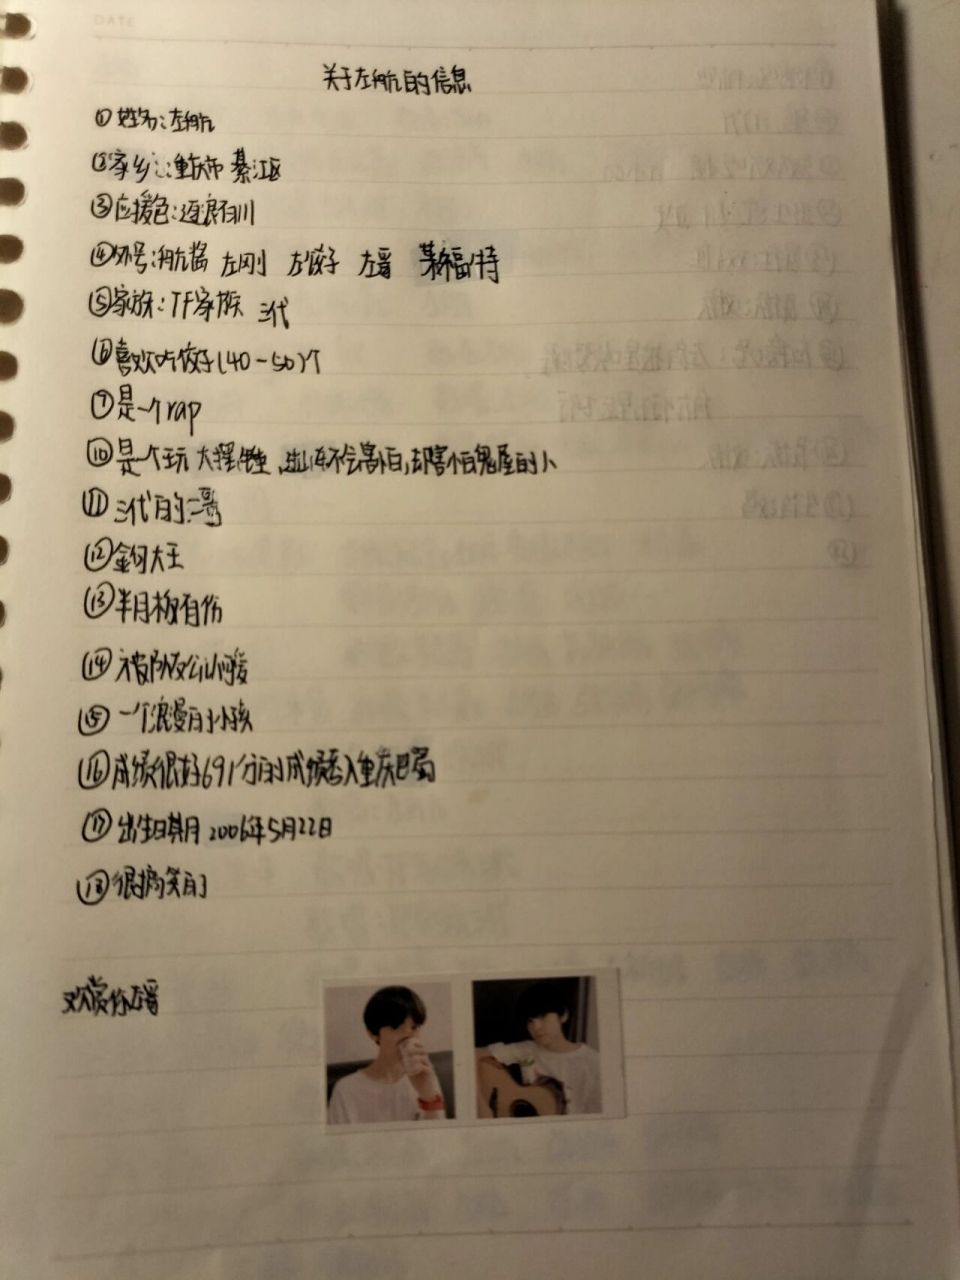 DATE
关于左航的信息
①姓名:左航
②家乡:重庆市 綦江区
③应援色:逐浪百川
④外号:航酱 左刚 左饺子 左哥 莱福特
⑤家族:TF家族 三代
⑥喜欢吃饺子(40-50)个
⑦是一个rap
⑩是个玩 大摆锤 不会害怕,却害怕鬼屋的小
⑪三代的二哥
⑫金句大王
⑬半月板有伤
⑭被
⑮一个浪漫的小孩
⑯成绩很好691分的成绩考入重庆巴蜀
⑰出生日期 2006年5月22日
⑱很搞笑的
欢赏你左哥